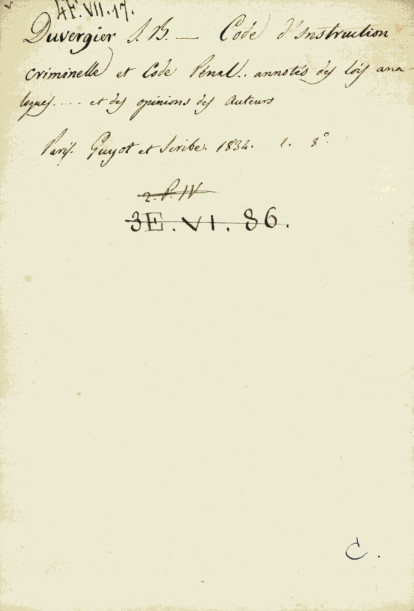 4F.VII.17.
Duvergier J. B. — Code d'Instruction
criminelle et Code Pénal.. annotés des lois ana-
logues.... et des opinions des Auteurs
Paris. Guyot et Scribe. 1834. 1. 8°.
2. P. IV
3E.VI.86.
C.